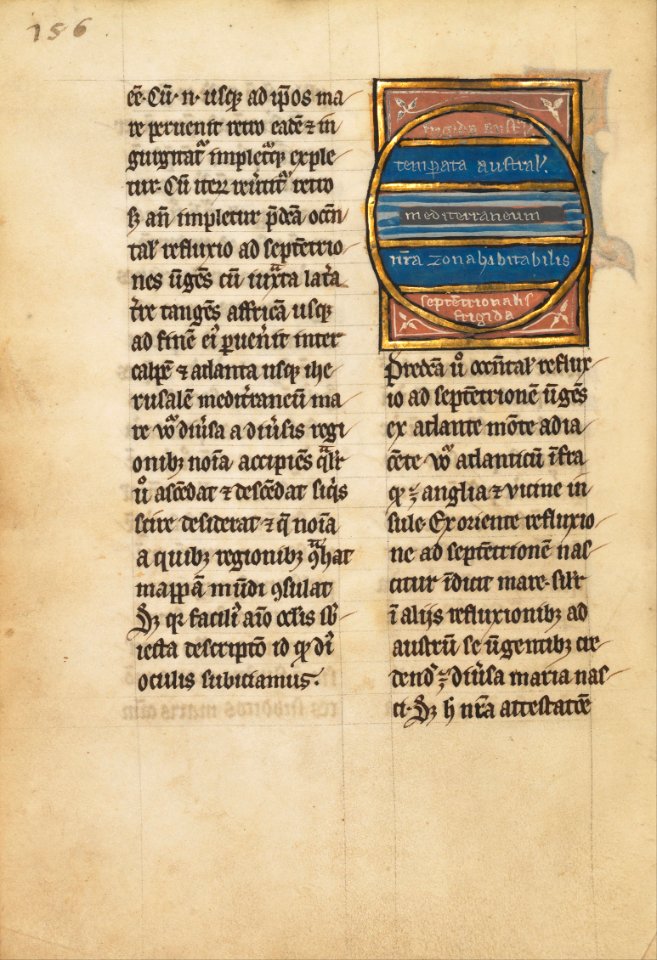 156
eē. Cū .n. usq; ad ip̄os ma
re peruenit retro eadē ⁊ in
gurgitat͛ impletq; exple
tur. Cū iter͛ retro
sꝫ an̄ impletur p̄dca occn̄
tal͛ refluxio ad septētrio
nes ūgēs cū iuxta lat͛a
tr̄e tangēs affricā usq;
ad finē ei͛ puenit inter
calpē ⁊ atlanta usq; ihe
rusalē medit͛raneū ma
re uo diūsa a diūsis regi
onib; noīa accipiēs
u͛ ascēdat ⁊ descēdat siq͛s
scire desiderat ⁊ q̄ noīa
a quib; regionib; ꝯt͛hat
mappā mūdi ꝯsulat
Sꝫ qr facili͛ aīo oclis sb͛
iecta descripto id qd di͛
oculis subiciamus.
frigida aust͛
temp̄ata austral͛.
mediterraneum
nr̄a zona habitabilis
septētrionalis
frigida
Predcā u͛ occn̄tal͛ reflux
io ad septētrionē ūgēs
ex atlante mōte adia
cēte uo atlanticū īfra
qd ÷ anglia ⁊ uicine in
sule. Ex oriente refluxio
ne ad septētrionē nas
citur īdicū mare. Silr
ī alijs refluxionib; ad
austrū se ūgentib; cre
dend͛ ÷ diūsa maria nas
ci. Sꝫ h nr̄a attestatiōe